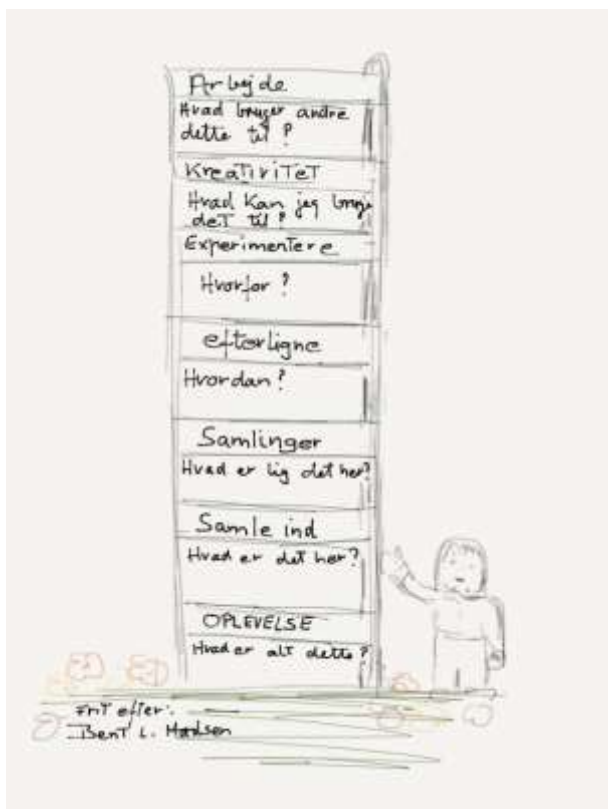 Arbejde
Hvad bruger andre
dette til?
Kreativitet
Hvad kan jeg bruge
det til?
Experimentere
Hvorfor?
efterligne
Hvordan?
Samlinger
Hvad er lig det her?
Samle ind
Hvad er det her?
OPLEVELSE
Hvad er alt dette?
Frit efter:
Bent L. Madsen